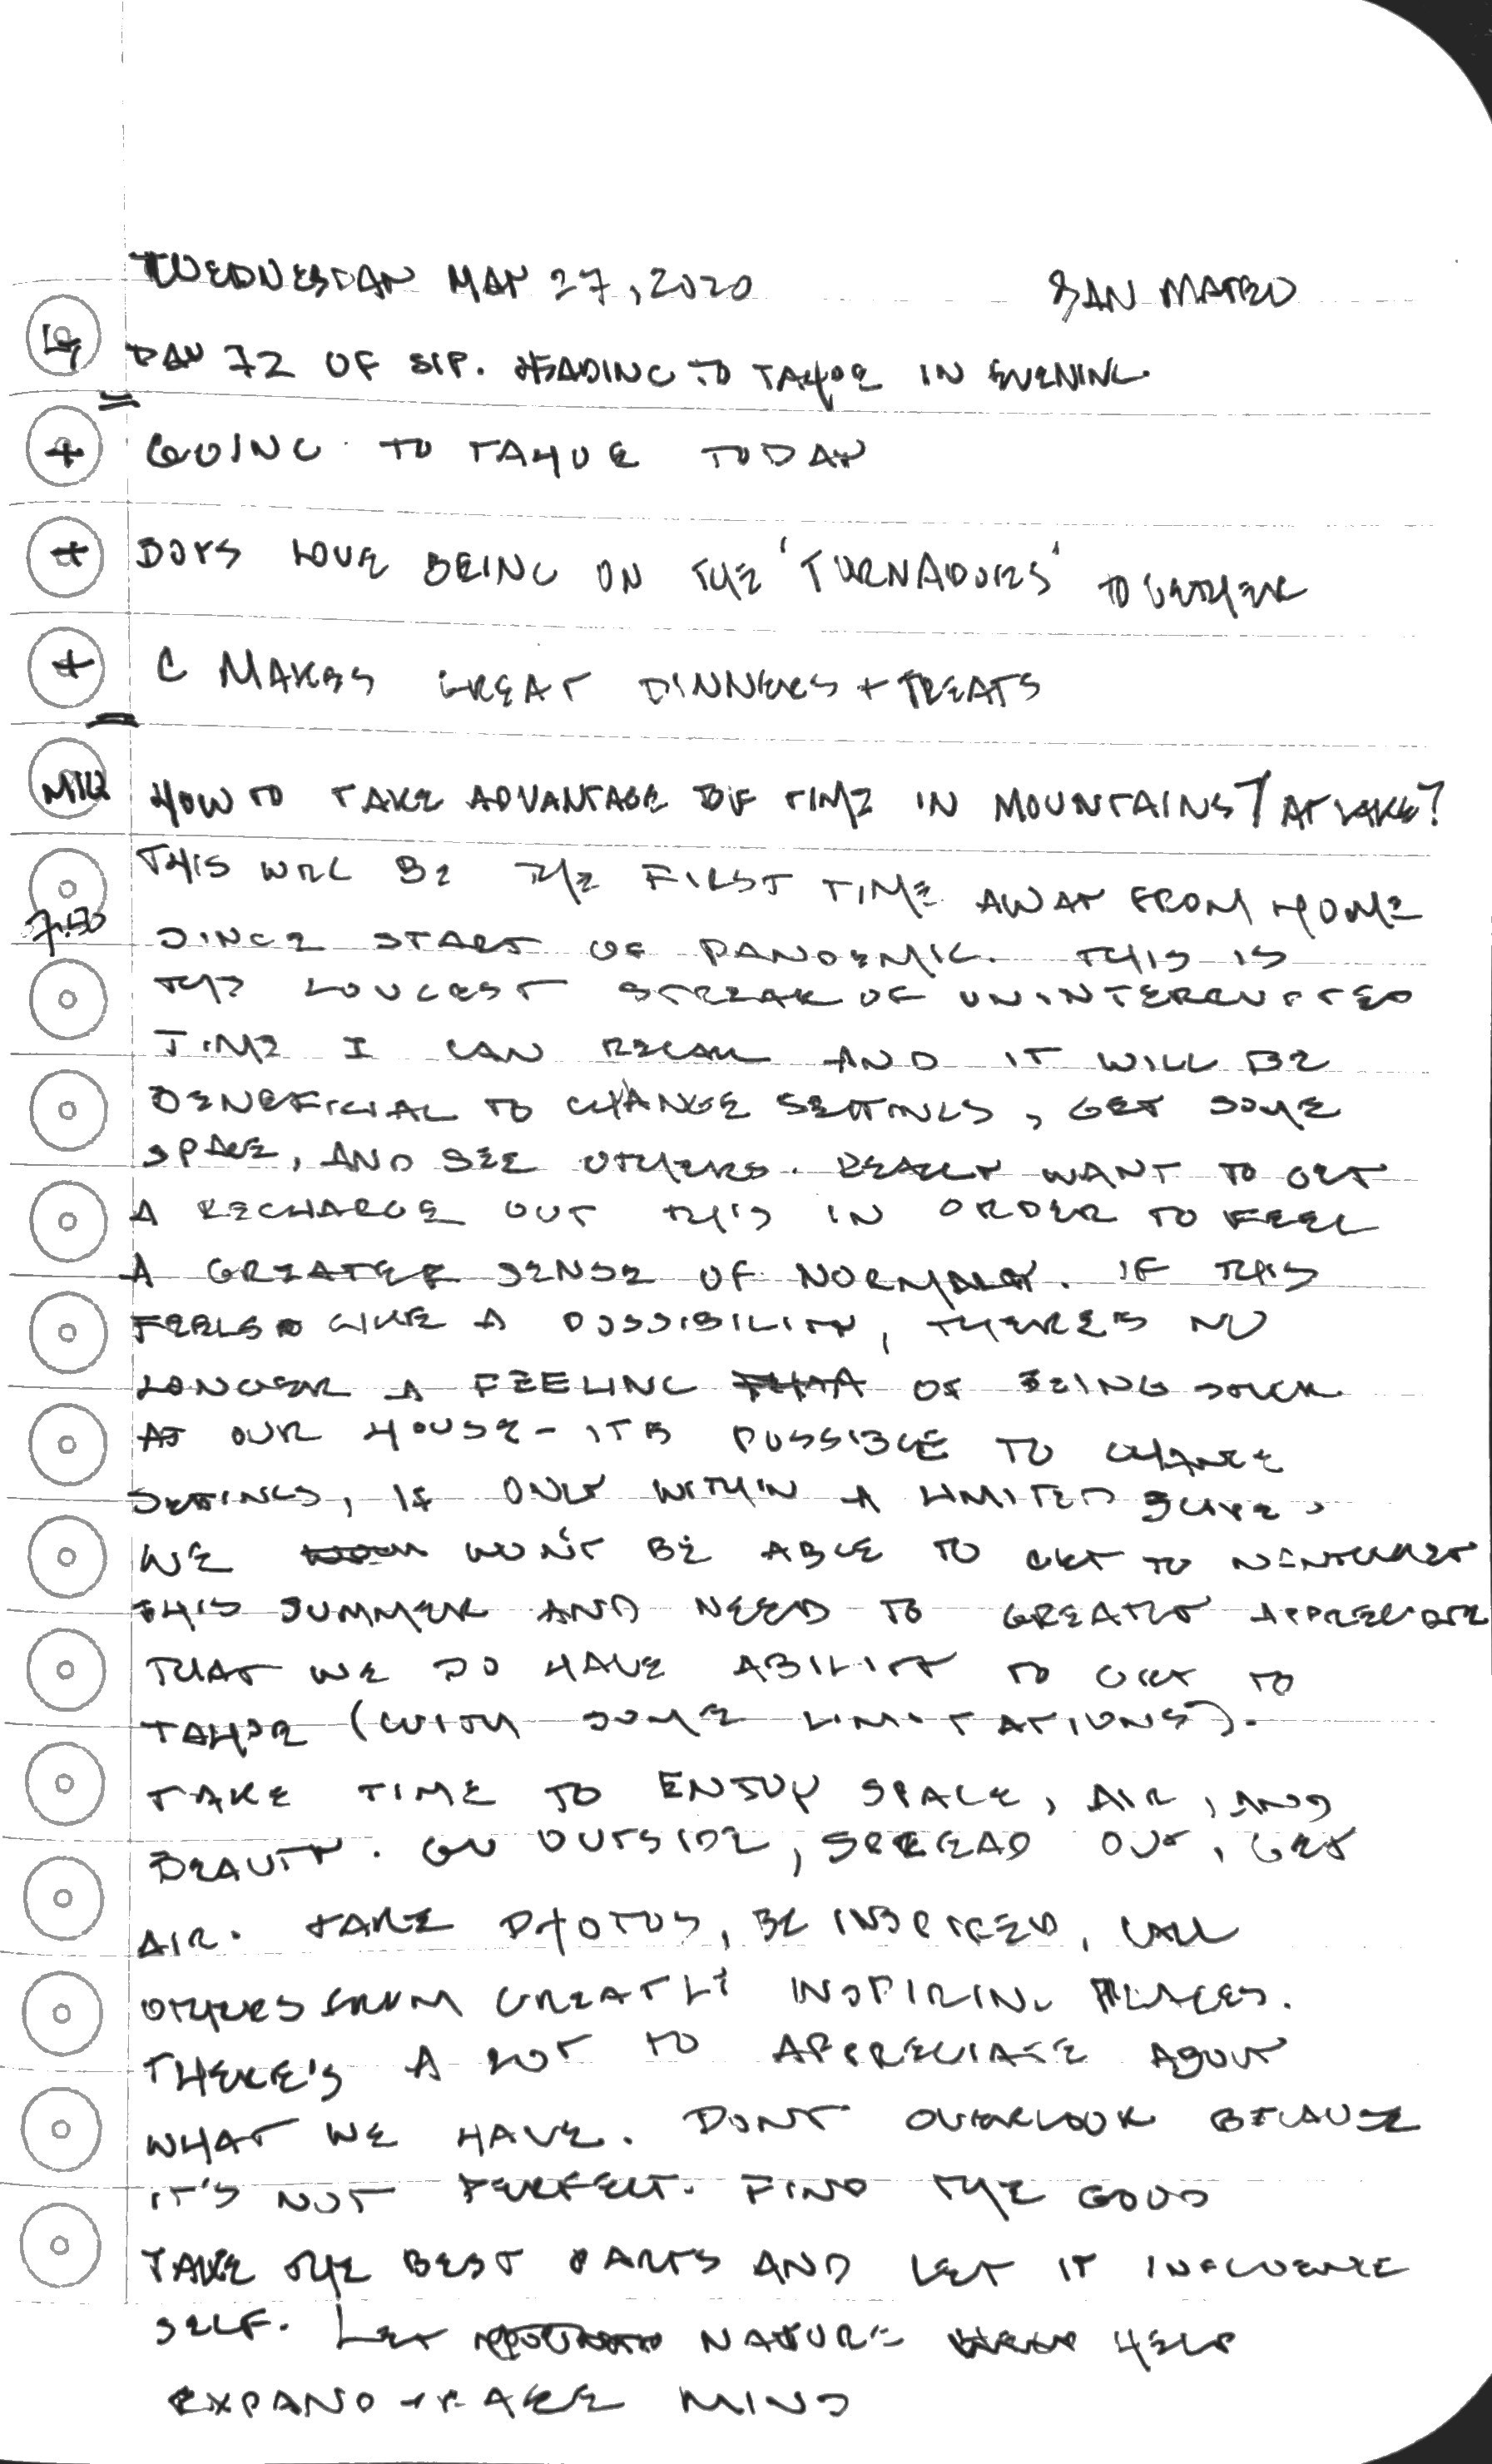 WEDNESDAY MAY 27, 2020 SAN MATEO
DAY 72 OF SIP. HEADING TO TAHOE IN EVENING.
+ GOING TO TAHOE TODAY
+ BOYS LOVE BEING ON THE 'TURNADOES' TOGETHER
+ C MAKES GREAT DINNERS + TREATS
HOW TO TAKE ADVANTAGE OF TIME IN MOUNTAINS / AT LAKE?
THIS WILL BE THE FIRST TIME AWAY FROM HOME
7:50 SINCE START OF PANDEMIC. THIS IS
THE LONGEST STREAK OF UNINTERRUPTED
TIME I CAN RECALL AND IT WILL BE
BENEFICIAL TO CHANGE SETTINGS, GET SOME
SPACE, AND SEE OTHERS. REALLY WANT TO GET
A RECHARGE OUT THIS IN ORDER TO FEEL
A GREATER SENSE OF NORMALCY. IF THIS
FEELS LIKE A POSSIBILITY, THERE'S NO
LONGER A FEELING OF BEING STUCK
AT OUR HOUSE - IT'S POSSIBLE TO CHANGE
SETTINGS, IF ONLY WITHIN A LIMITED SCOPE.
WE WON'T BE ABLE TO GET TO NANTUCKET
THIS SUMMER AND NEED TO GREATLY APPRECIATE
THAT WE DO HAVE ABILITY TO GET TO
TAHOE (WITH SOME LIMITATIONS).
TAKE TIME TO ENJOY SPACE, AIR, AND
BEAUTY. GO OUTSIDE, SPREAD OUT, GET
AIR. TAKE PHOTOS, BE INSPIRED, CALL
OTHERS FROM GREATLY INSPIRING PLACES.
THERE'S A LOT TO APPRECIATE ABOUT
WHAT WE HAVE. DON'T OVERLOOK BECAUSE
IT'S NOT PERFECT. FIND THE GOOD
TAKE THE BEST PARTS AND LET IT INFLUENCE
SELF. LET NATURE HELP
EXPAND + MIND